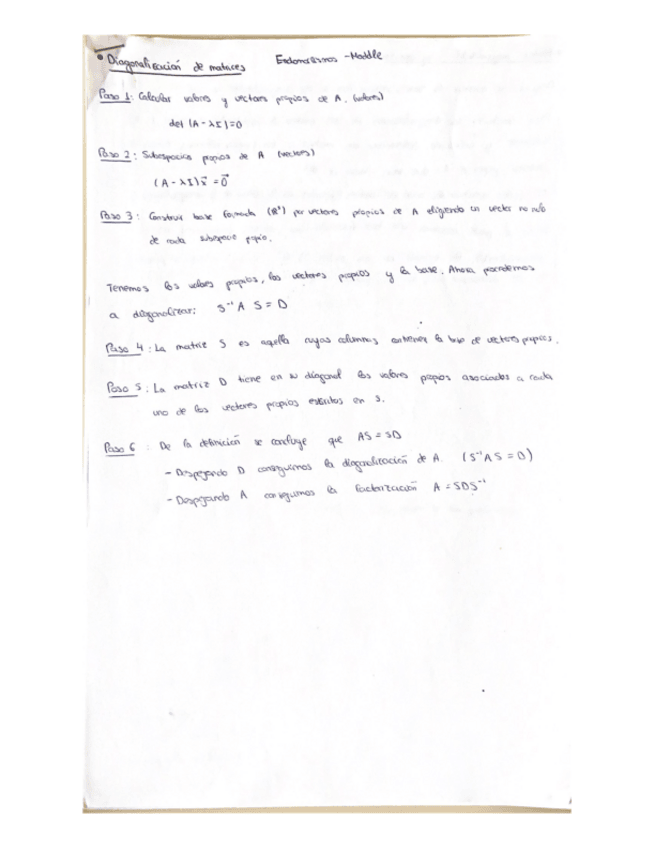 • Diagonalización de matrices Endomorfismos - Moddle
Paso 1: Calcular valores y vectores propios de A. (valores)
det (A - λI) = 0
Paso 2: Subespacios propios de A (vectores)
(A - λI) x⃗ = 0⃗
Paso 3: Construir base formada por vectores propios de A eligiendo un vector no nulo
de cada subespacio propio.
Tenemos los valores propios, los vectores propios y la base. Ahora procedemos
a diagonalizar: S⁻¹ A S = D
Paso 4: La matriz S es aquella cuyas columnas contienen la base de vectores propios.
Paso 5: La matriz D tiene en su diagonal los valores propios asociados a cada
uno de los vectores propios escritos en S.
Paso 6: De la definición se concluye que AS = SD
- Despejando D conseguimos la diagonalización de A. (S⁻¹AS = D)
- Despejando A conseguimos la factorización A = SDS⁻¹